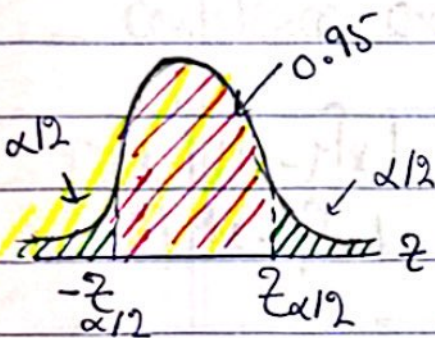 0.95
α/2
α/2
-z α/2
z α/2
z